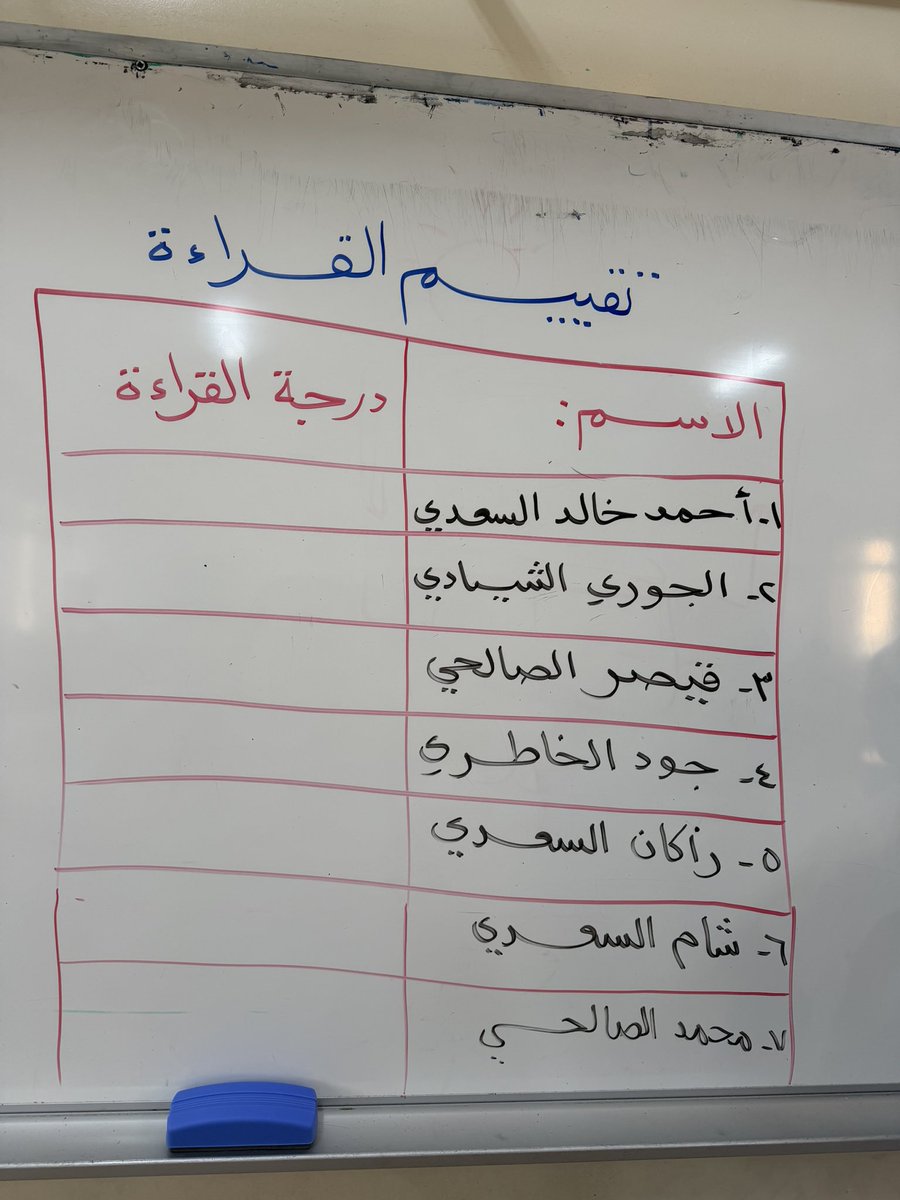 تقييم القراءة
الاسم: درجة القراءة
١- أحمد خالد السعدي
٢- الجوري الشيادي
٣- قيصر الصالحي
٤- جود الخاطري
٥- راكان السعدي
٦- شام السعدي
٧- محمد الصالحي